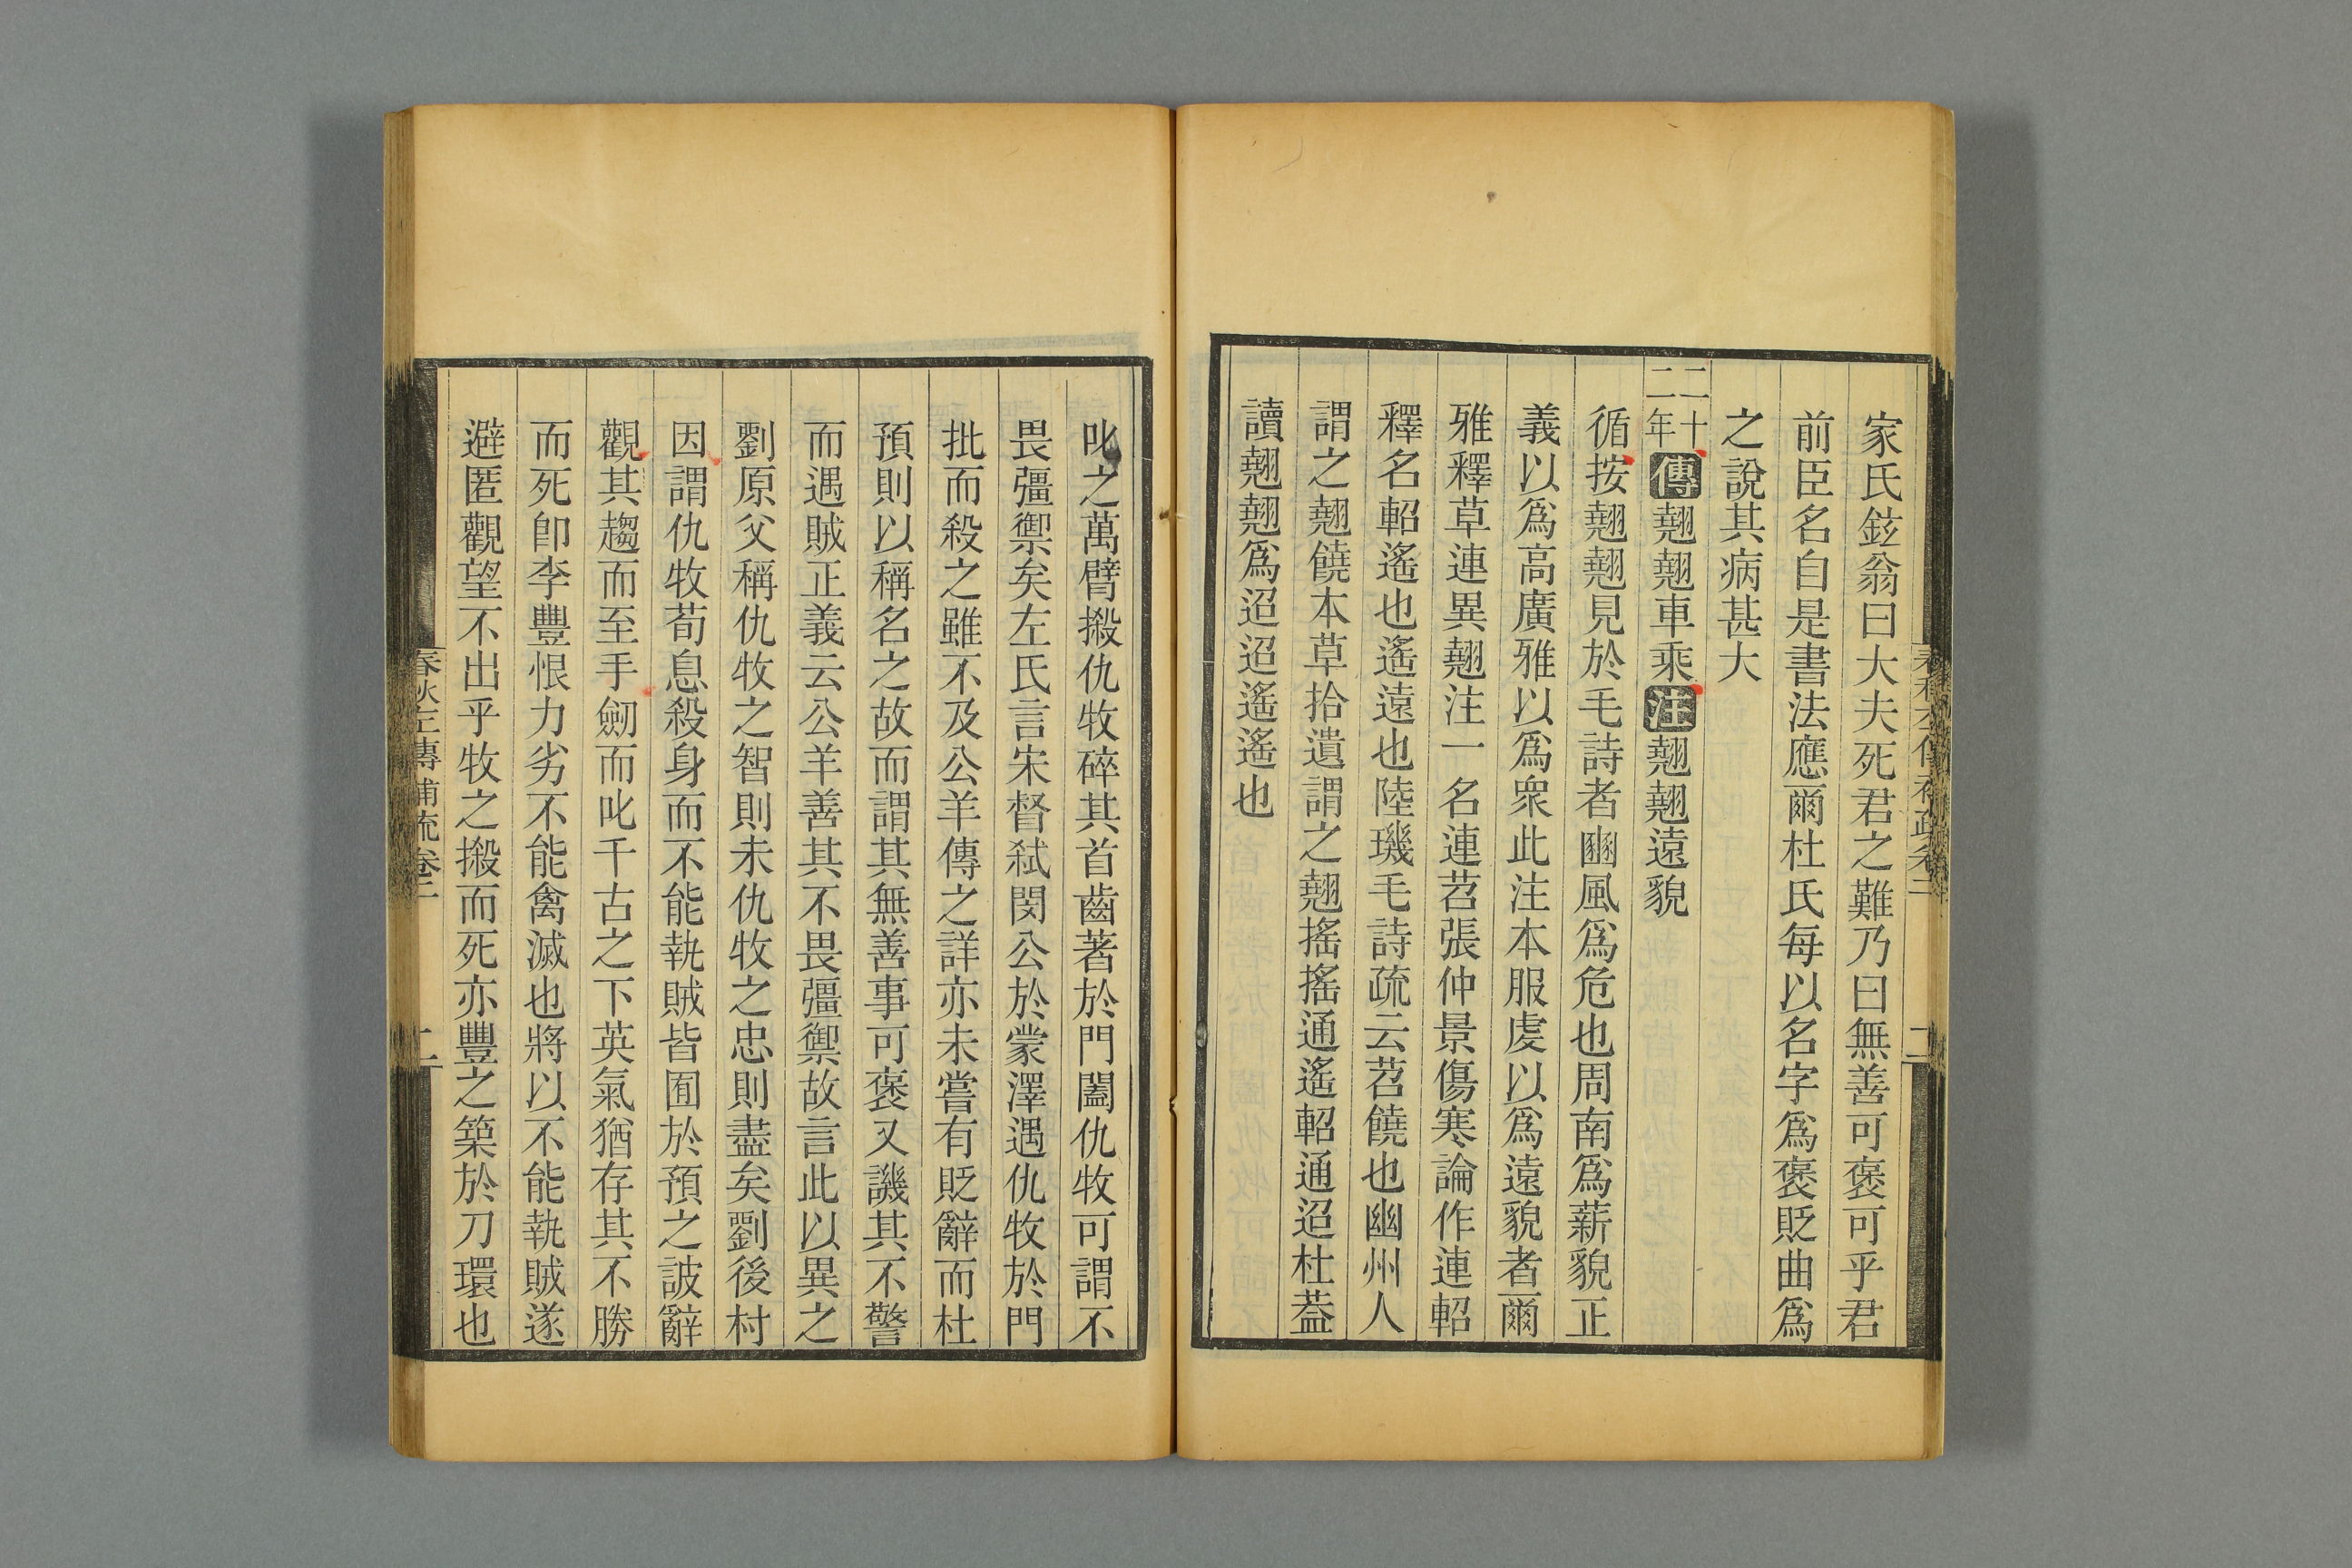 家氏鉉翁曰大夫死君之難乃曰無善可襃可乎君
前臣名自是書法應爾杜氏每以名字爲襃貶曲爲
之說其病甚大
二十二年傳翹翹車乘注翹翹遠貌
循按翹翹見於毛詩者豳風爲危也周南爲薪貌正
義以爲高廣雅以爲衆此注本服虔以爲遠貌者爾
雅釋草連異翹注一名連苕張仲景傷寒論作連軺
釋名軺遙也遙遠也陸璣毛詩疏云苕饒也幽州人
謂之翹饒本草拾遺謂之翹搖搖通遙軺通迢杜葢
讀翹翹爲迢迢遙遙也
叱之萬臂搬仇牧碎其首齒著於門闔仇牧可謂不
畏彊禦矣左氏言宋督弒閔公於蒙澤遇仇牧於門
批而殺之雖不及公羊傳之詳亦未嘗有貶辭而杜
預則以稱名之故而謂其無善事可襃又譏其不警
而遇賊正義云公羊善其不畏彊禦故言此以異之
劉原父稱仇牧之智則未仇牧之忠則盡矣劉後村
因謂仇牧荀息殺身而不能執賊皆囿於預之詖辭
觀其趨而至手劒而叱千古之下英氣猶存其不勝
而死卽李豐恨力劣不能禽滅也將以不能執賊遂
避匿觀望不出乎牧之搬而死亦豐之築於刀環也
春秋左傳補疏卷二
二